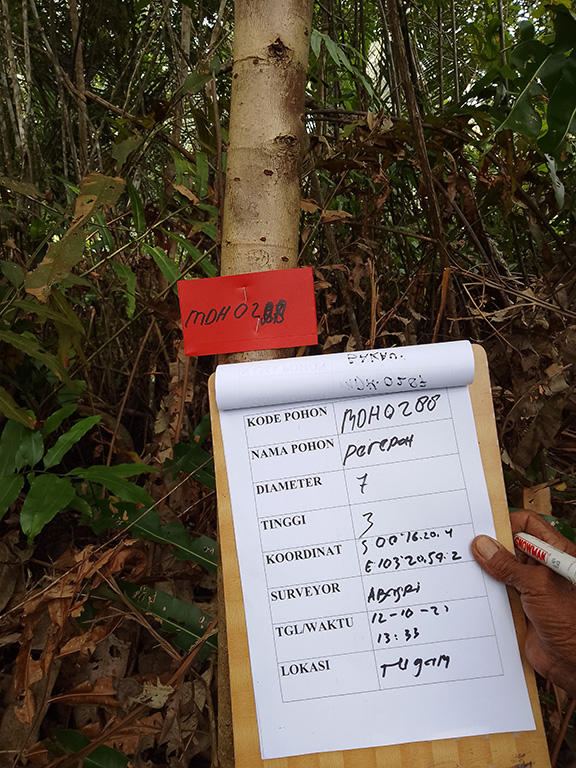 MDH0288
KODE POHON MDH0288
NAMA POHON perepah
DIAMETER 7
TINGGI 3
KOORDINAT S 00°16.20.4
E 103°20.59.2
SURVEYOR
TGL/WAKTU 12-10-21
13:33
LOKASI
SNOWMAN